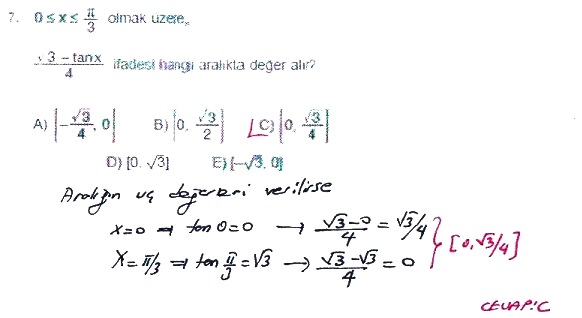 7. 0 ≤ x ≤ π/3 olmak üzere,
√3 − tanx / 4 ifadesi hangi aralıkta değer alır?
A) [−√3/4, 0] B) [0, √3/2] C) [0, √3/4]
D) [0, √3] E) [−√3, 0]
Aralığın uç değerleri verilirse
x=0 ⇒ tan 0=0 → √3−0/4 = √3/4
x=π/3 ⇒ tan π/3=√3 → √3−√3/4 = 0
[0,√3/4]
CEVAP:C